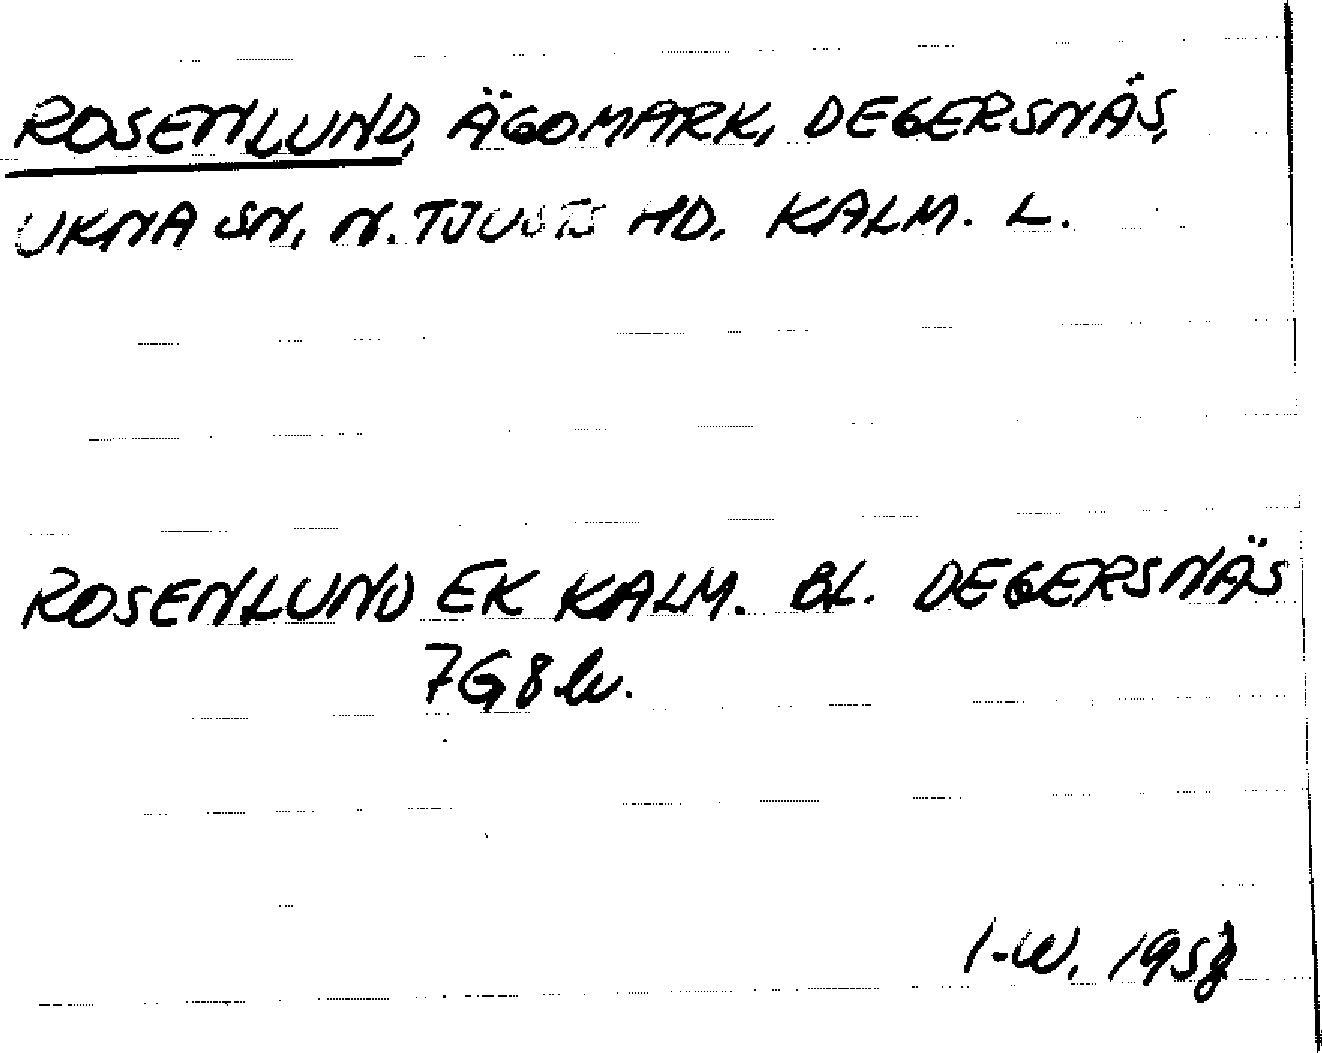 ROSENLUND, ÄGOMARK, DEGERSNÄS,
UKNA SN, N. TJUSTS HD. KALM. L.
ROSENLUND EK KALM. BL. DEGERSNÄS
7G8
I-W.